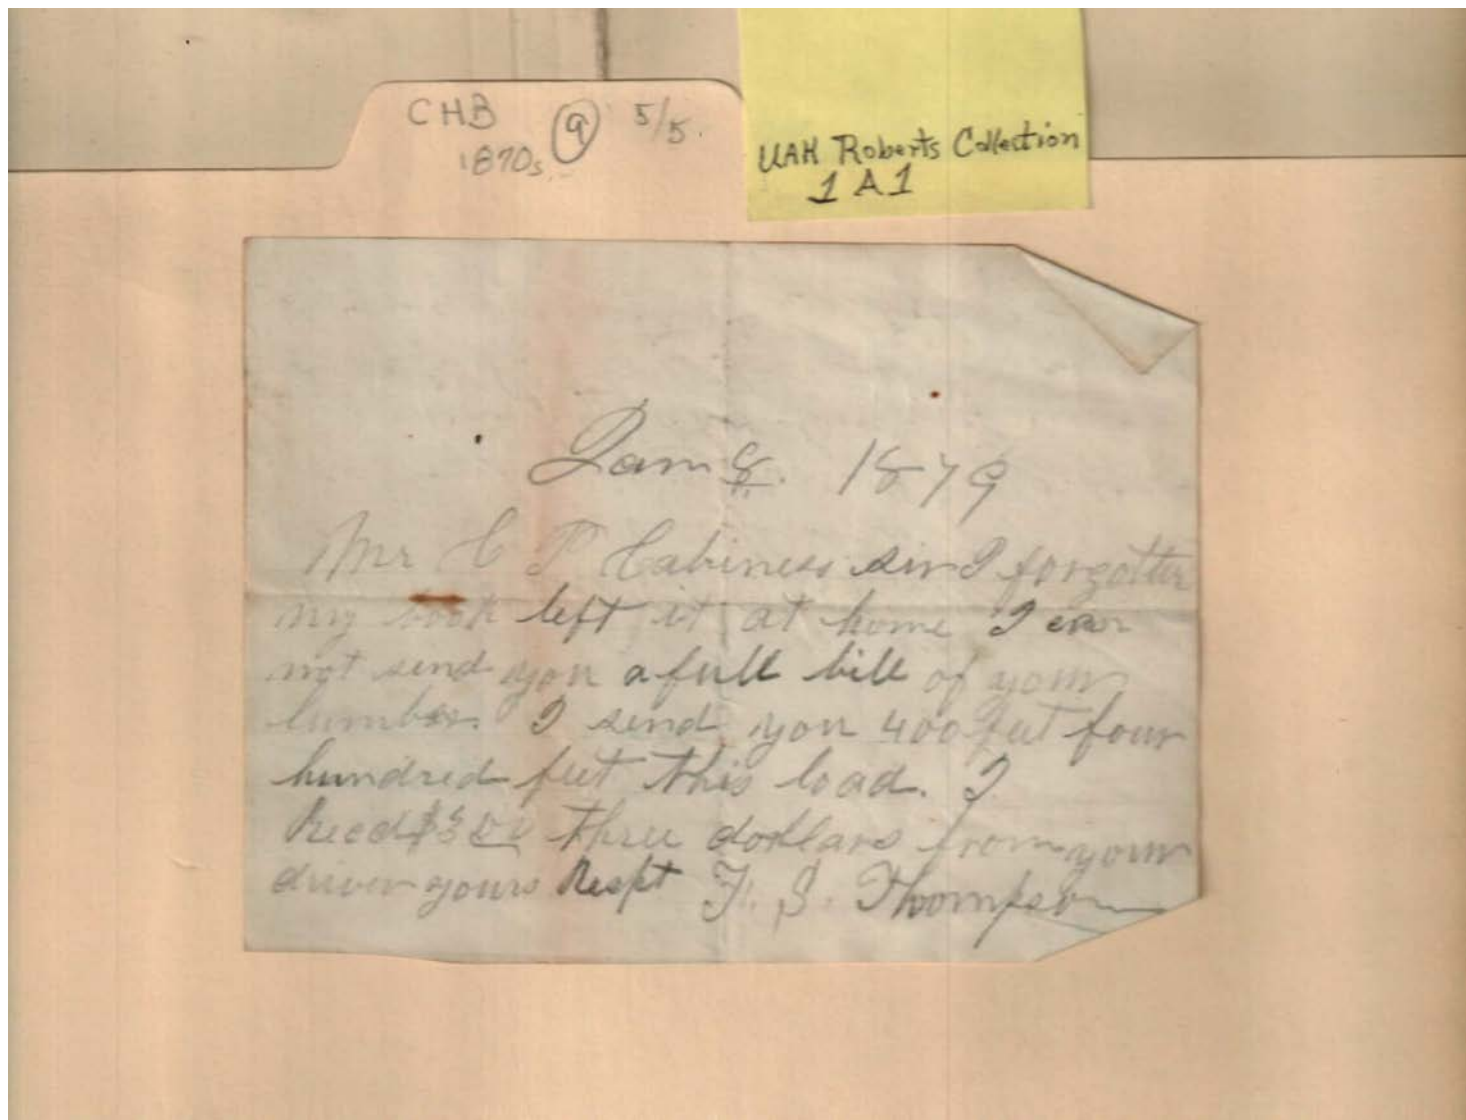 CHB 9 5/5.
1870s
UAH Roberts Collection
1A1
Jam 8. 1879
Mr C P Cabiness sir I forgotten
my book left it at home I can
not send you a full bill of your
lumber. I send you 400 feet four
hundred feet this load. I
Recd $3 00 three dollars from your
driver yours Respt F. S. Thompson